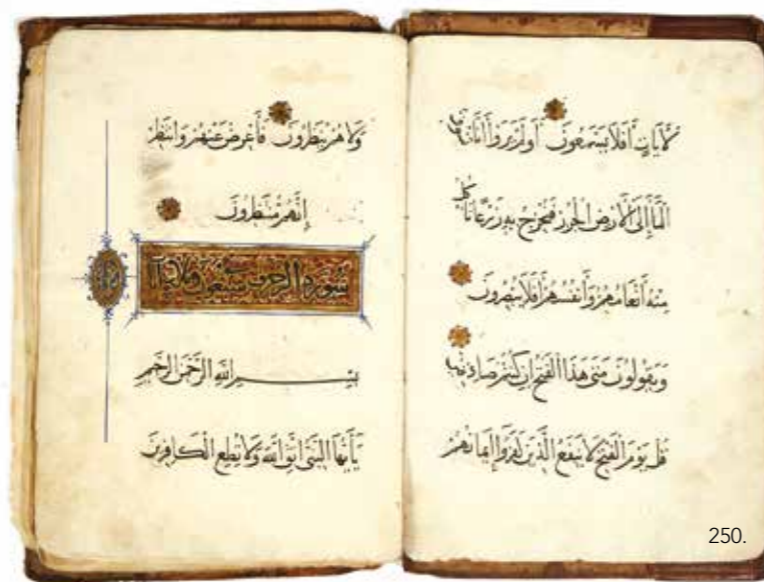 لَآيَاتٍ أَفَلَا يَسْمَعُونَ أَوَلَمْ يَرَوْا أَنَّا نَسُوقُ
الْمَاءَ إِلَى الْأَرْضِ الْجُرُزِ فَنُخْرِجُ بِهِ زَرْعًا تَأْكُلُ
مِنْهُ أَنْعَامُهُمْ وَأَنْفُسُهُمْ أَفَلَا يُبْصِرُونَ
وَيَقُولُونَ مَتَى هَذَا الْفَتْحُ إِنْ كُنْتُمْ صَادِقِينَ
قُلْ يَوْمَ الْفَتْحِ لَا يَنْفَعُ الَّذِينَ كَفَرُوا إِيمَانُهُمْ
وَلَا هُمْ يُنْظَرُونَ فَأَعْرِضْ عَنْهُمْ وَانْتَظِرْ
إِنَّهُمْ مُنْتَظِرُونَ
سورة الاحزاب سبعون وثلاث آيات
بِسْمِ اللَّهِ الرَّحْمَنِ الرَّحِيمِ
يَأَيُّهَا النَّبِيُّ اتَّقِ اللَّهَ وَلَا تُطِعِ الْكَافِرِينَ
250.